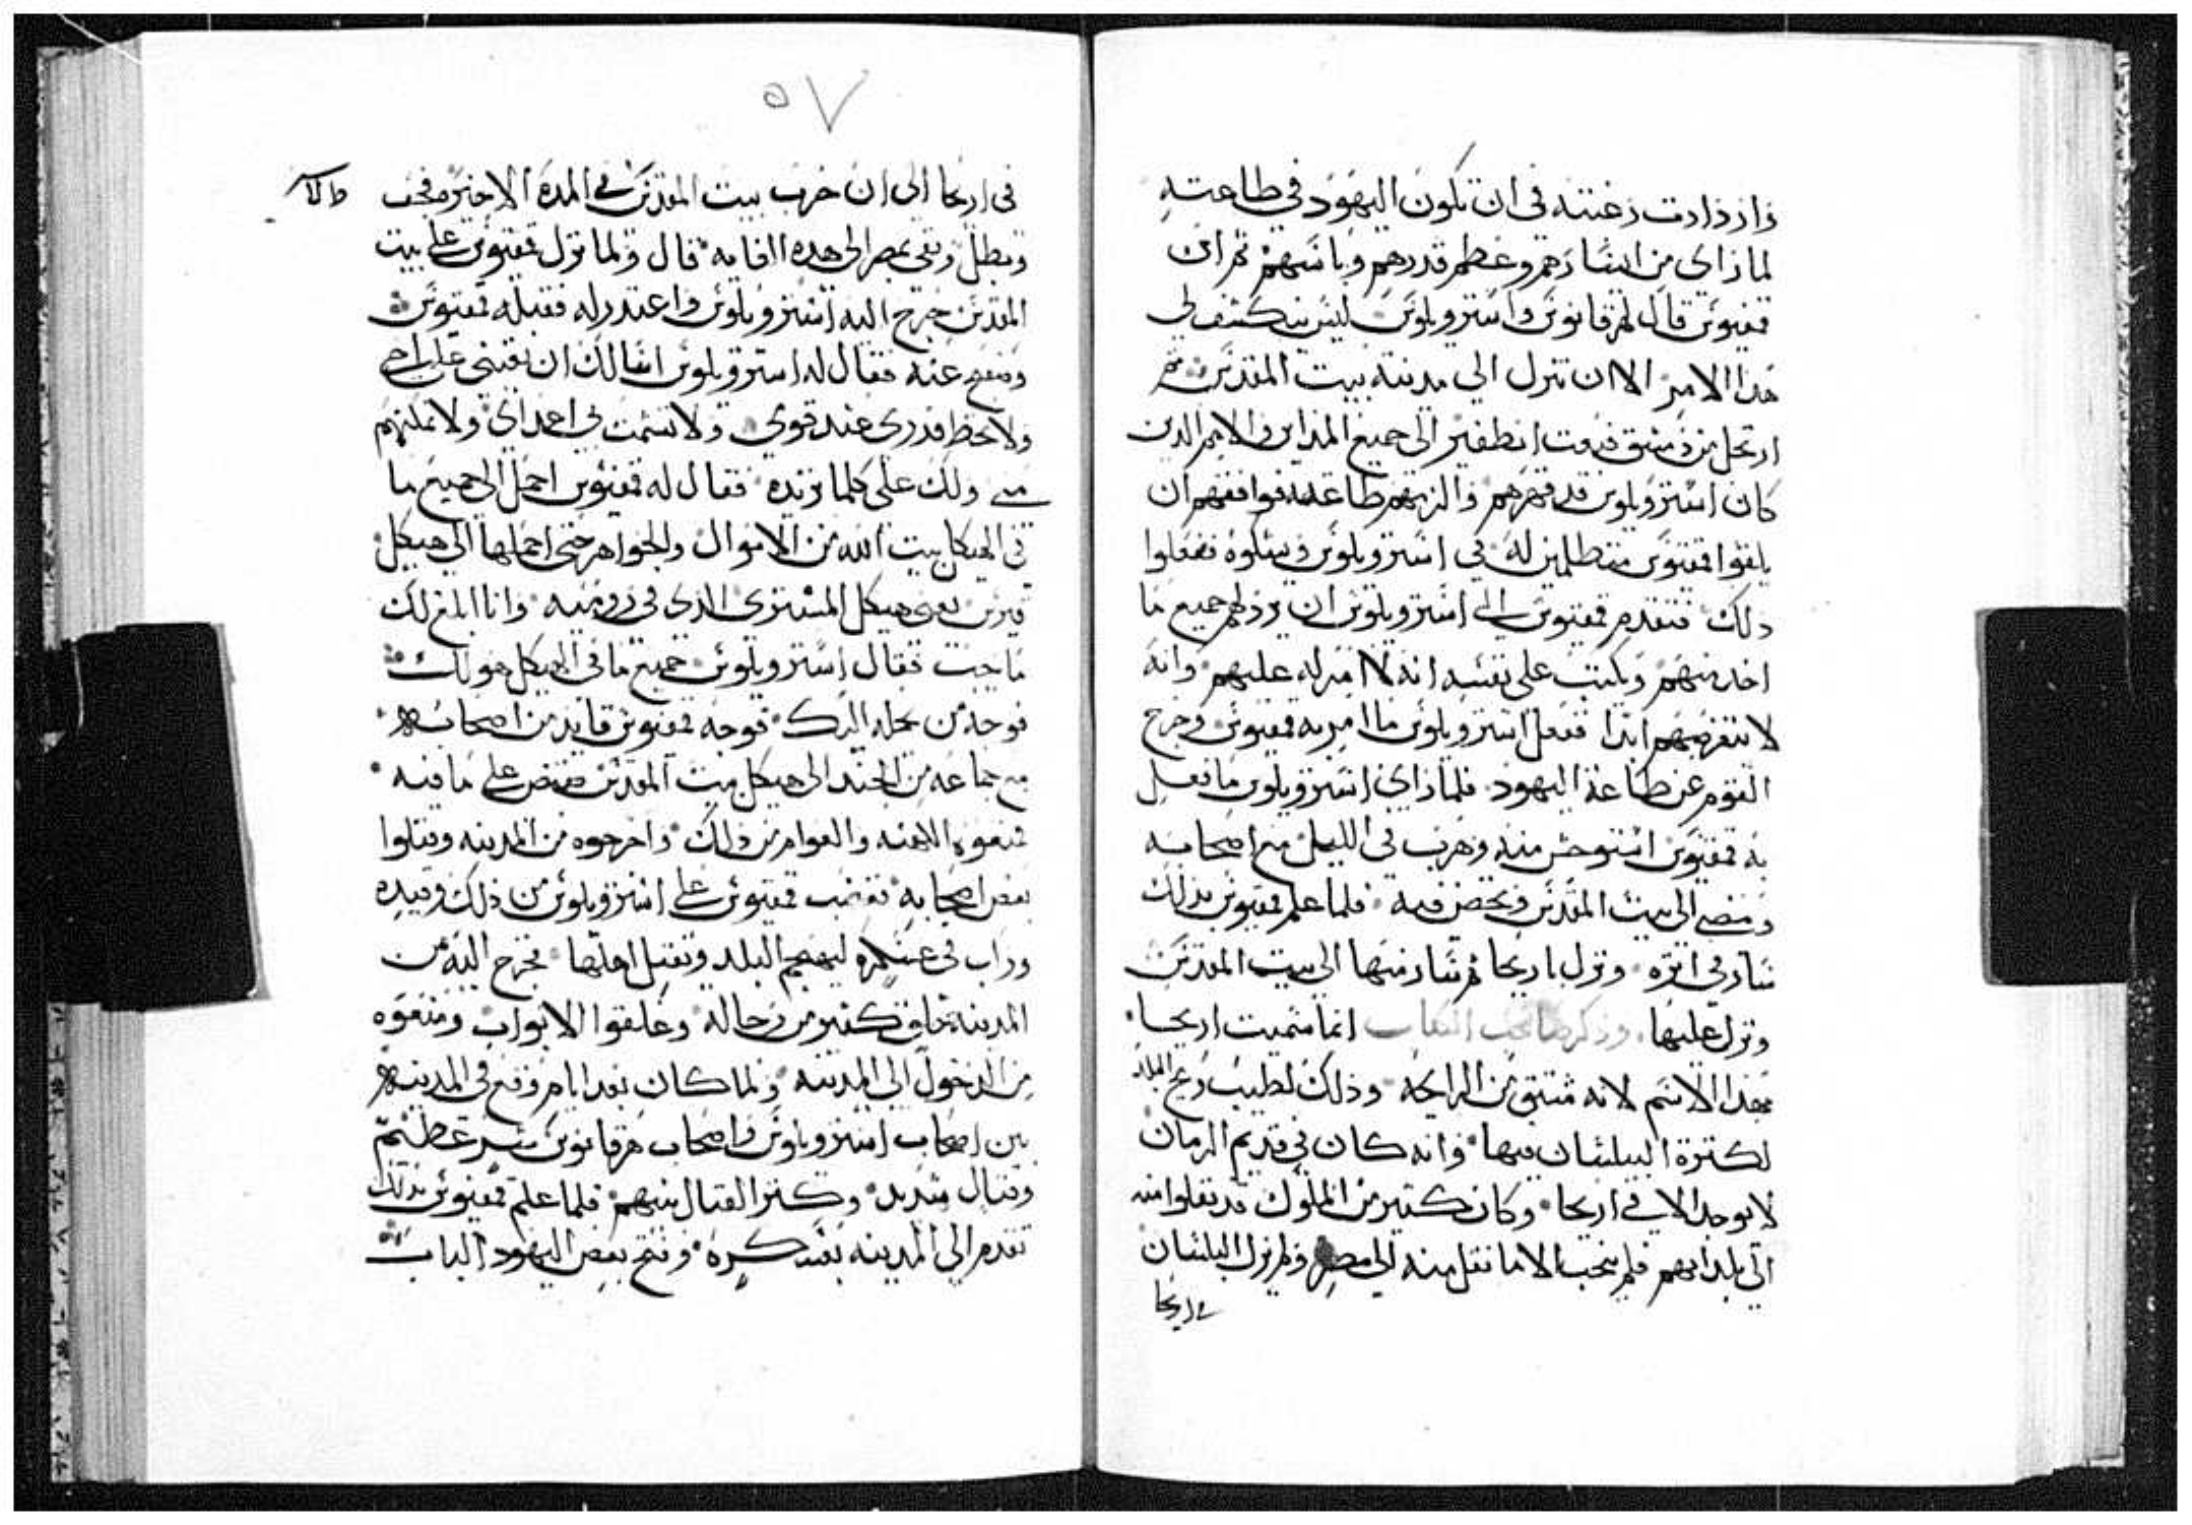 وازدادت رغبته في ان تكون اليهود في طاعته
لما راى من اشارهم وعظم قدرهم وباسهم ثم ان
فمفيوس قال لهرقانوس واسترويلوس ليس ينكشف لي
هذا الامر الا ان تنزل الي مدينة بيت المقدس ثم
ارتحل من دمشق فبعث انطفير الى جميع المداين والامم الذين
كان استرويلوس قد قهرهم والزمهم طاعته فوافقهم ان
يلقوا فمفيوس متظلمين له في استرويلوس ويشكوه ففعلوا
ذلك فتقدم فمفيوس الى استرويلوس ان يرد لهم جميع ما
اخد منهم ويكتب على نفسه انه لا امر له عليهم وانه
لا يتعرضهم ابدا ففعل استرويلوس ما امر به فمفيوس وخرج
القوم عن طاعة اليهود فلما راى استرويلوس ما فعل
به فمفيوس استوحش منه وهرب في الليل مع اصحابه
ومضى الى بيت المقدس وتحصن فيه فلما علم فمفيوس بذلك
سار في اثره ونزل باريحا ثم سار منها الى بيت المقدس
ونزل عليها وذكر صاحب الكتاب انما سميت اريحا
بهذا الاسم لانه مشتق من الرايحة وذلك لطيب ريح البلد
لكثرة البيلسان فيها وانه كان في قديم الزمان
لا يوجد الا في اريحا وكان كثير من الملوك قد نقلوا منه
الى بلدانهم فلم ينجب الا ما نقل منه الى مصر ولم يزل البلسان
في اريحا
٥٧
في اريحا الى ان خرب بيت المقدس في المدة الاخيرة فجف
وبطل وبقى بمصر الى هذه الغايه قال ولما نزل فمفيوس على بيت
المقدس خرج اليه استرويلوس واعتدر له فقبله فمفيوس
وصفح عنه فقال له استرويلوس اسالك ان تعينني على اخي
ولا تحط قدري عند قومي ولا تشمت بي اعداي ولا تملكهم
مني ولك على كلما تريده فقال له فمفيوس احمل الى جميع ما
في الهيكل بيت الله من الاموال والجواهر حتى احملها الى هيكل
يعني هيكل المشتري الذي في رومية وانا ابلغ لك
ما تحب فقال استرويلوس جميع ما في الهيكل هو لك
فوجه من يحمله اليك فوجه فمفيوس قايد من اصحابه
مع جماعه من الجند الى هيكل بيت المقدس فقبض على ما فيه
فمنعوه الكهنة والعوام من ذلك واخرجوه من المدينه وقتلوا
بعض اصحابه فغضب فمفيوس على استرويلوس من ذلك وقيده
وركب في عسكره ليهجم البلد ويقتل اهلها فخرج اليه من
المدينة خلق كثير من رجاله وغلقوا الابواب ومنعوه
من الدخول الى المدينه ولما كان بعد ايام وقع في المدينه
بين اصحاب استرويلوس واصحاب هرقانوس شر عظيم
وقتال شديد وكثر القتال بينهم فلما علم فمفيوس بذلك
تقدم الى المدينه بعسكره وفتح بعض اليهود الباب